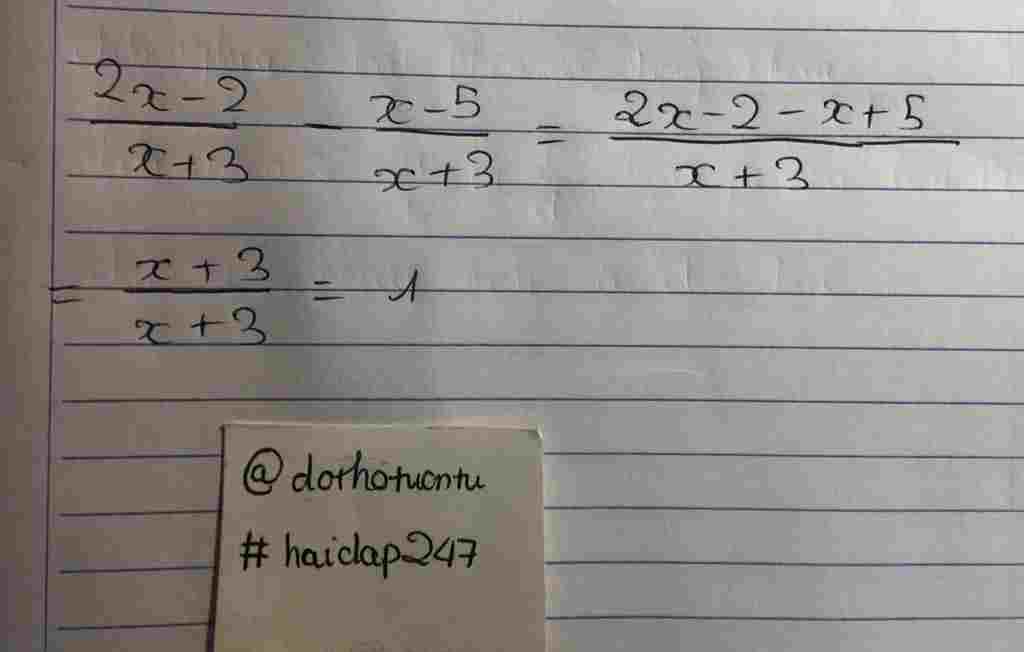 2x-2/x+3 - x-5/x+3 = 2x-2-x+5/x+3
= x+3/x+3 = 1
@dorhotuontu
# haiclap247